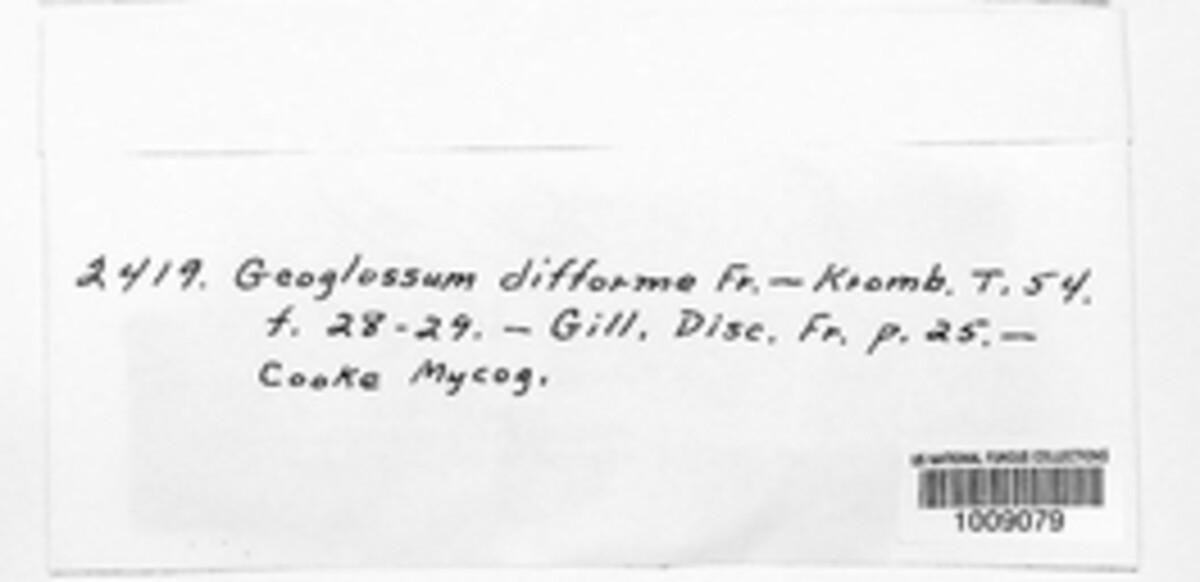 2419. Geoglossum difforme Fr. — Kromb. T. 54.
f. 28-29. — Gill. Disc. Fr. p. 25. —
Cooke Mycog.
US NATIONAL FUNGUS COLLECTIONS
1009079